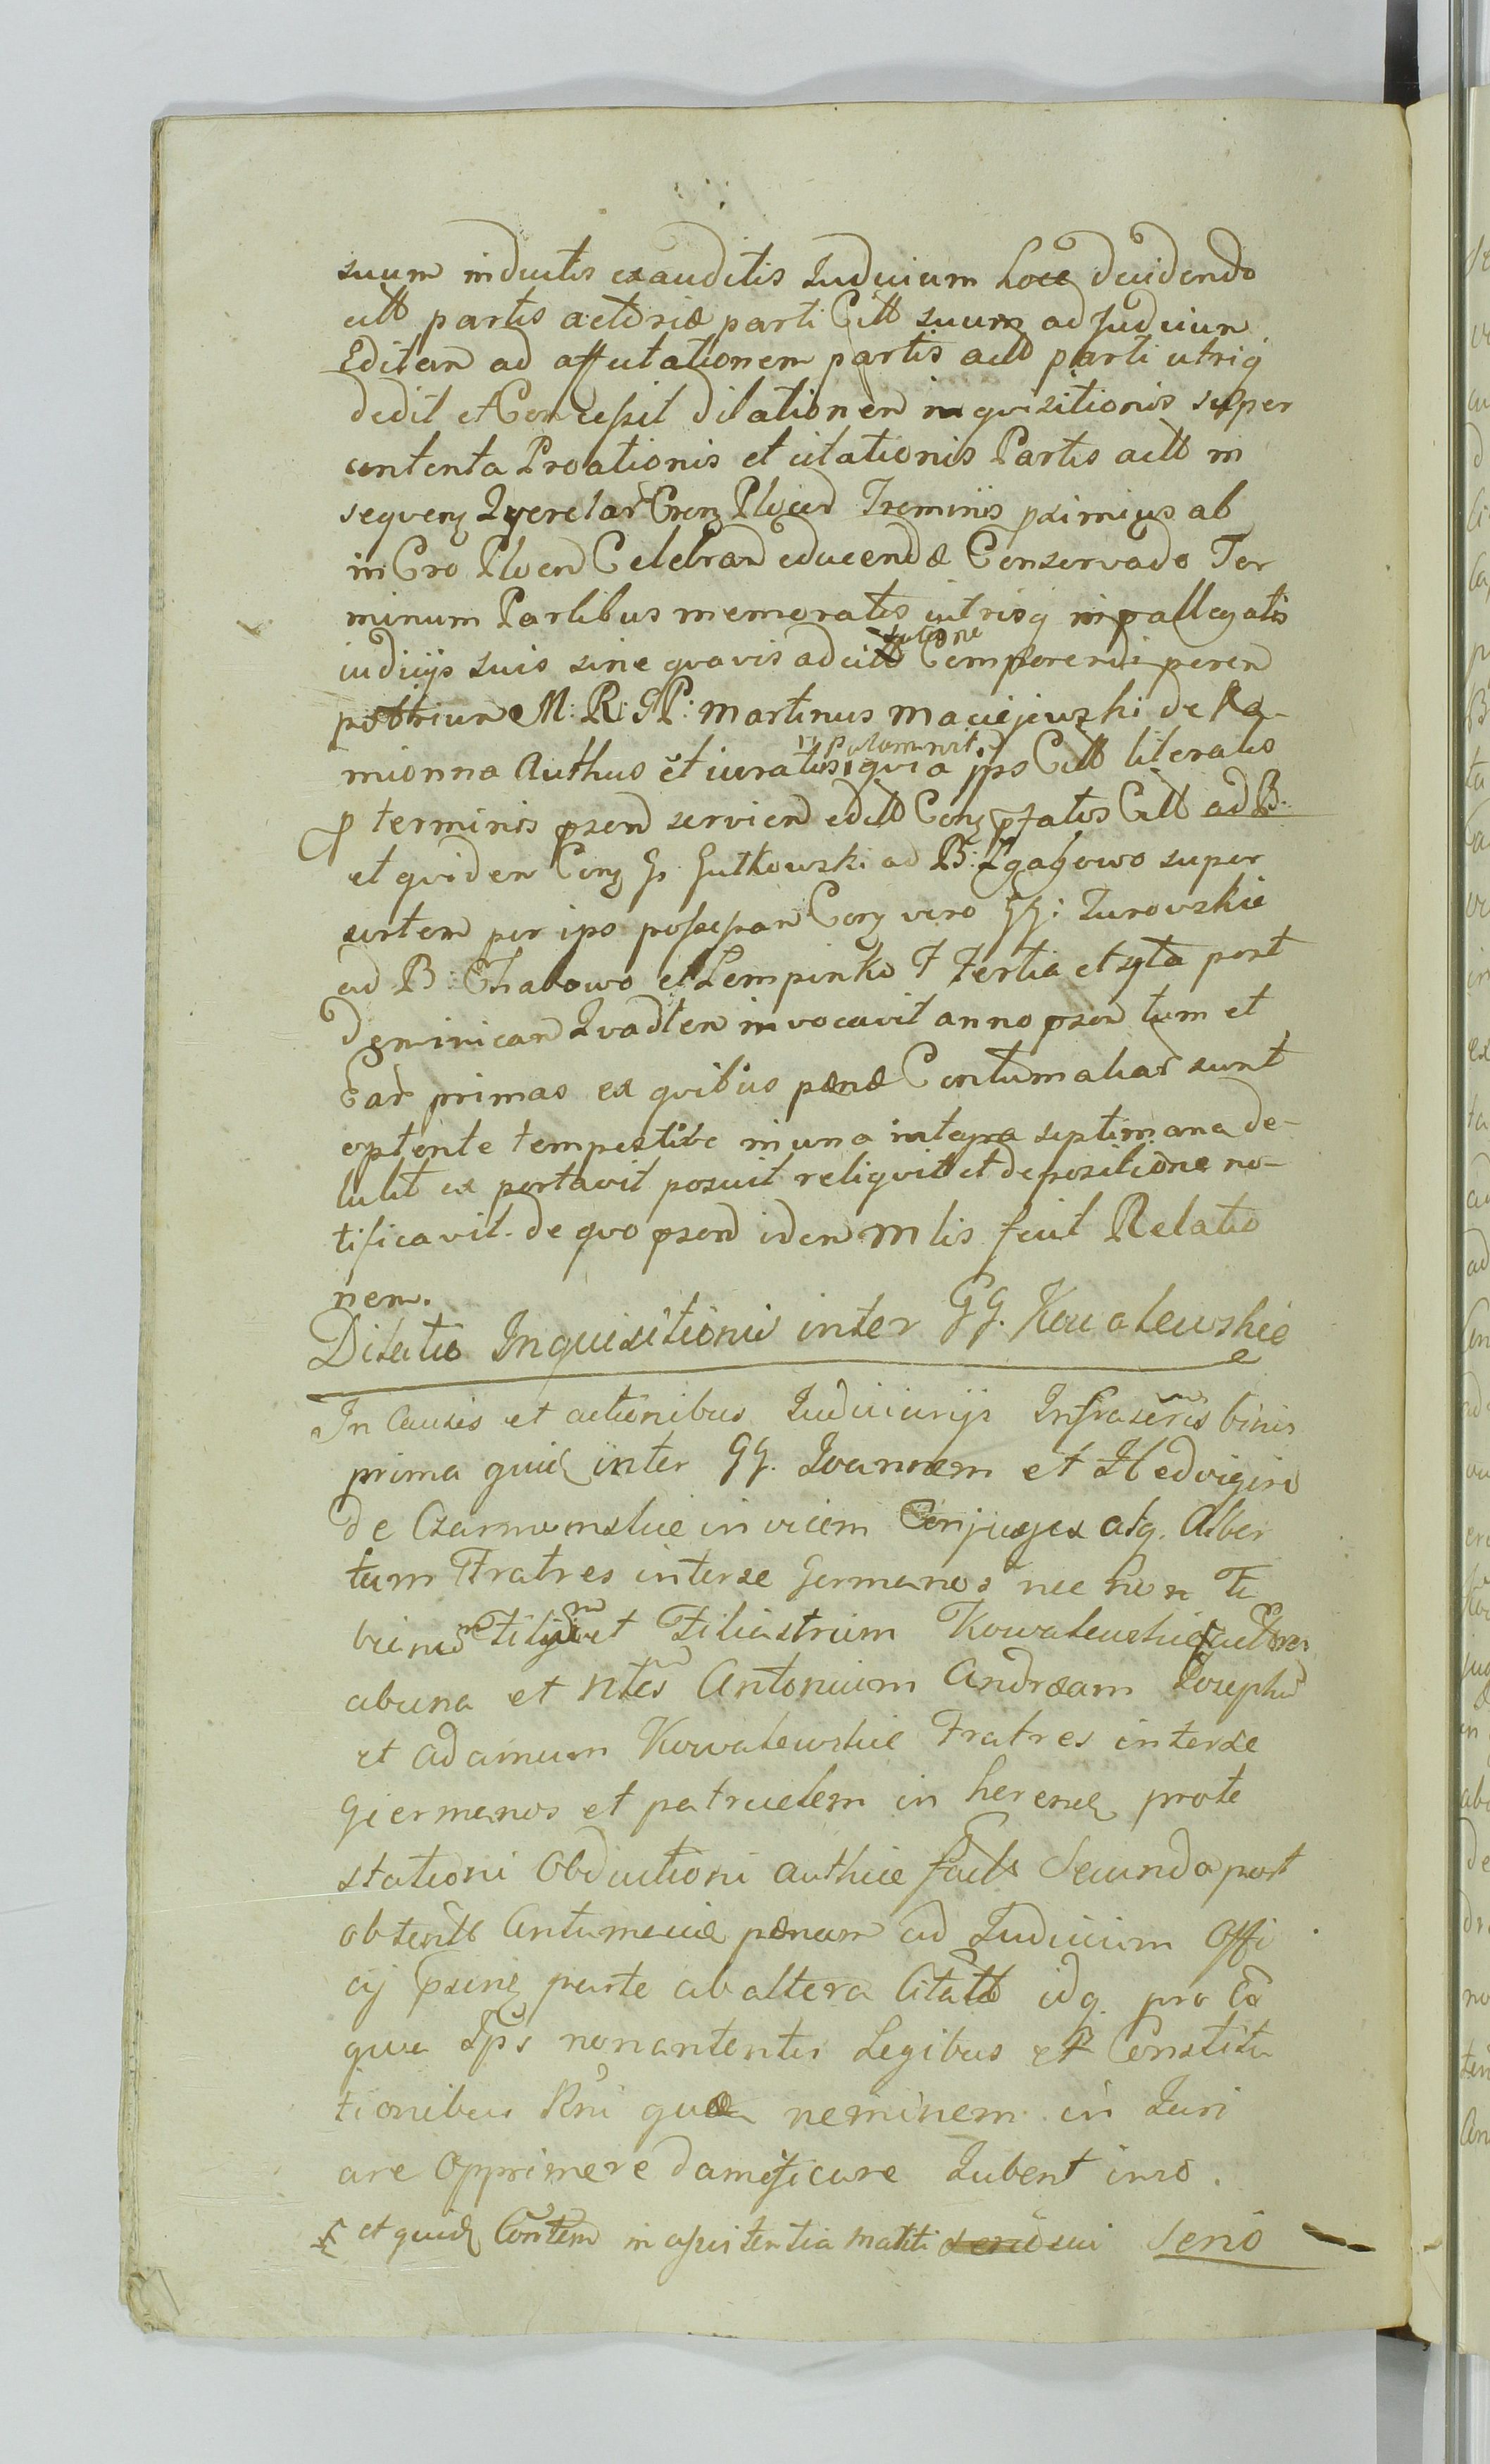 suum inductis exauditis Judicium hocce decidendo
citt partis actoriæ parti Citt suum ad Judicium
Editam ad affectationem partis actt parti utriq
dedit et Concessit dilationem inquisitionis super
contenta Proationis et citationis Partis actt in
sequenz Querelar Crenz Plocen Treminis primius ab
in Cro Plocen Celebran educendæ Conservado Ter
minum Partibus memoratis utrisq in pallegatis
iudicijs suis sine quavis adcitt Comparendi peren
ptorium M: R: GP: Martinus Maciejewski de Ka-
mionna Authus et iuratus quia ips Citt literalis
p terminis psend serviend editt Conz pfatos Citt ad B:
et quidem Conz G: Gutkowski ad B: Zgagowo super
sortem per ips possessan Conz vero GG: Zurowskie
ad B: Chabowo et Lempinko F Tertia et sxta post
Dominicam Quadten invocavit anno psen tum et
Ear primas ex quibus pænæ Contumaliar sunt
optente tempestive in una integra septimana de-
tulit ex portavit posuit reliquit et depositione no-
tificavit. de quo psend idem Mlis fecit Relatio
nem.
Dilatio Inquisitionis inter GG. Kowalewskie
In Causis et actionibus Judiciarijs Infrascris binis
prima quid inter GG. Joannem et Hedvigim
de Czarnomskie invicem Conjuges atq. Alber
tum Fratres interse Germanos nec non Fa
bianum Filium et Filiastrum Kowalewskie actores
abuna et Ntes Antonium Andræam Josephu
et Adamum Kowalewskie Fratres interse
Giermanos et patruelem in herend prote
stationi Obductioni authice factt Secunda post
obtentt Contumaciæ pænam ad Judicium Offi
cij psenz parte ab altera Citatt idq. pro Eo
quia Ips non contentis Legibus et Constitu
tionibus Rni quæ neminem in Juri
are Opprimere damificare Jubent imo.
et quid Contem in assistentia Matti sui Serio